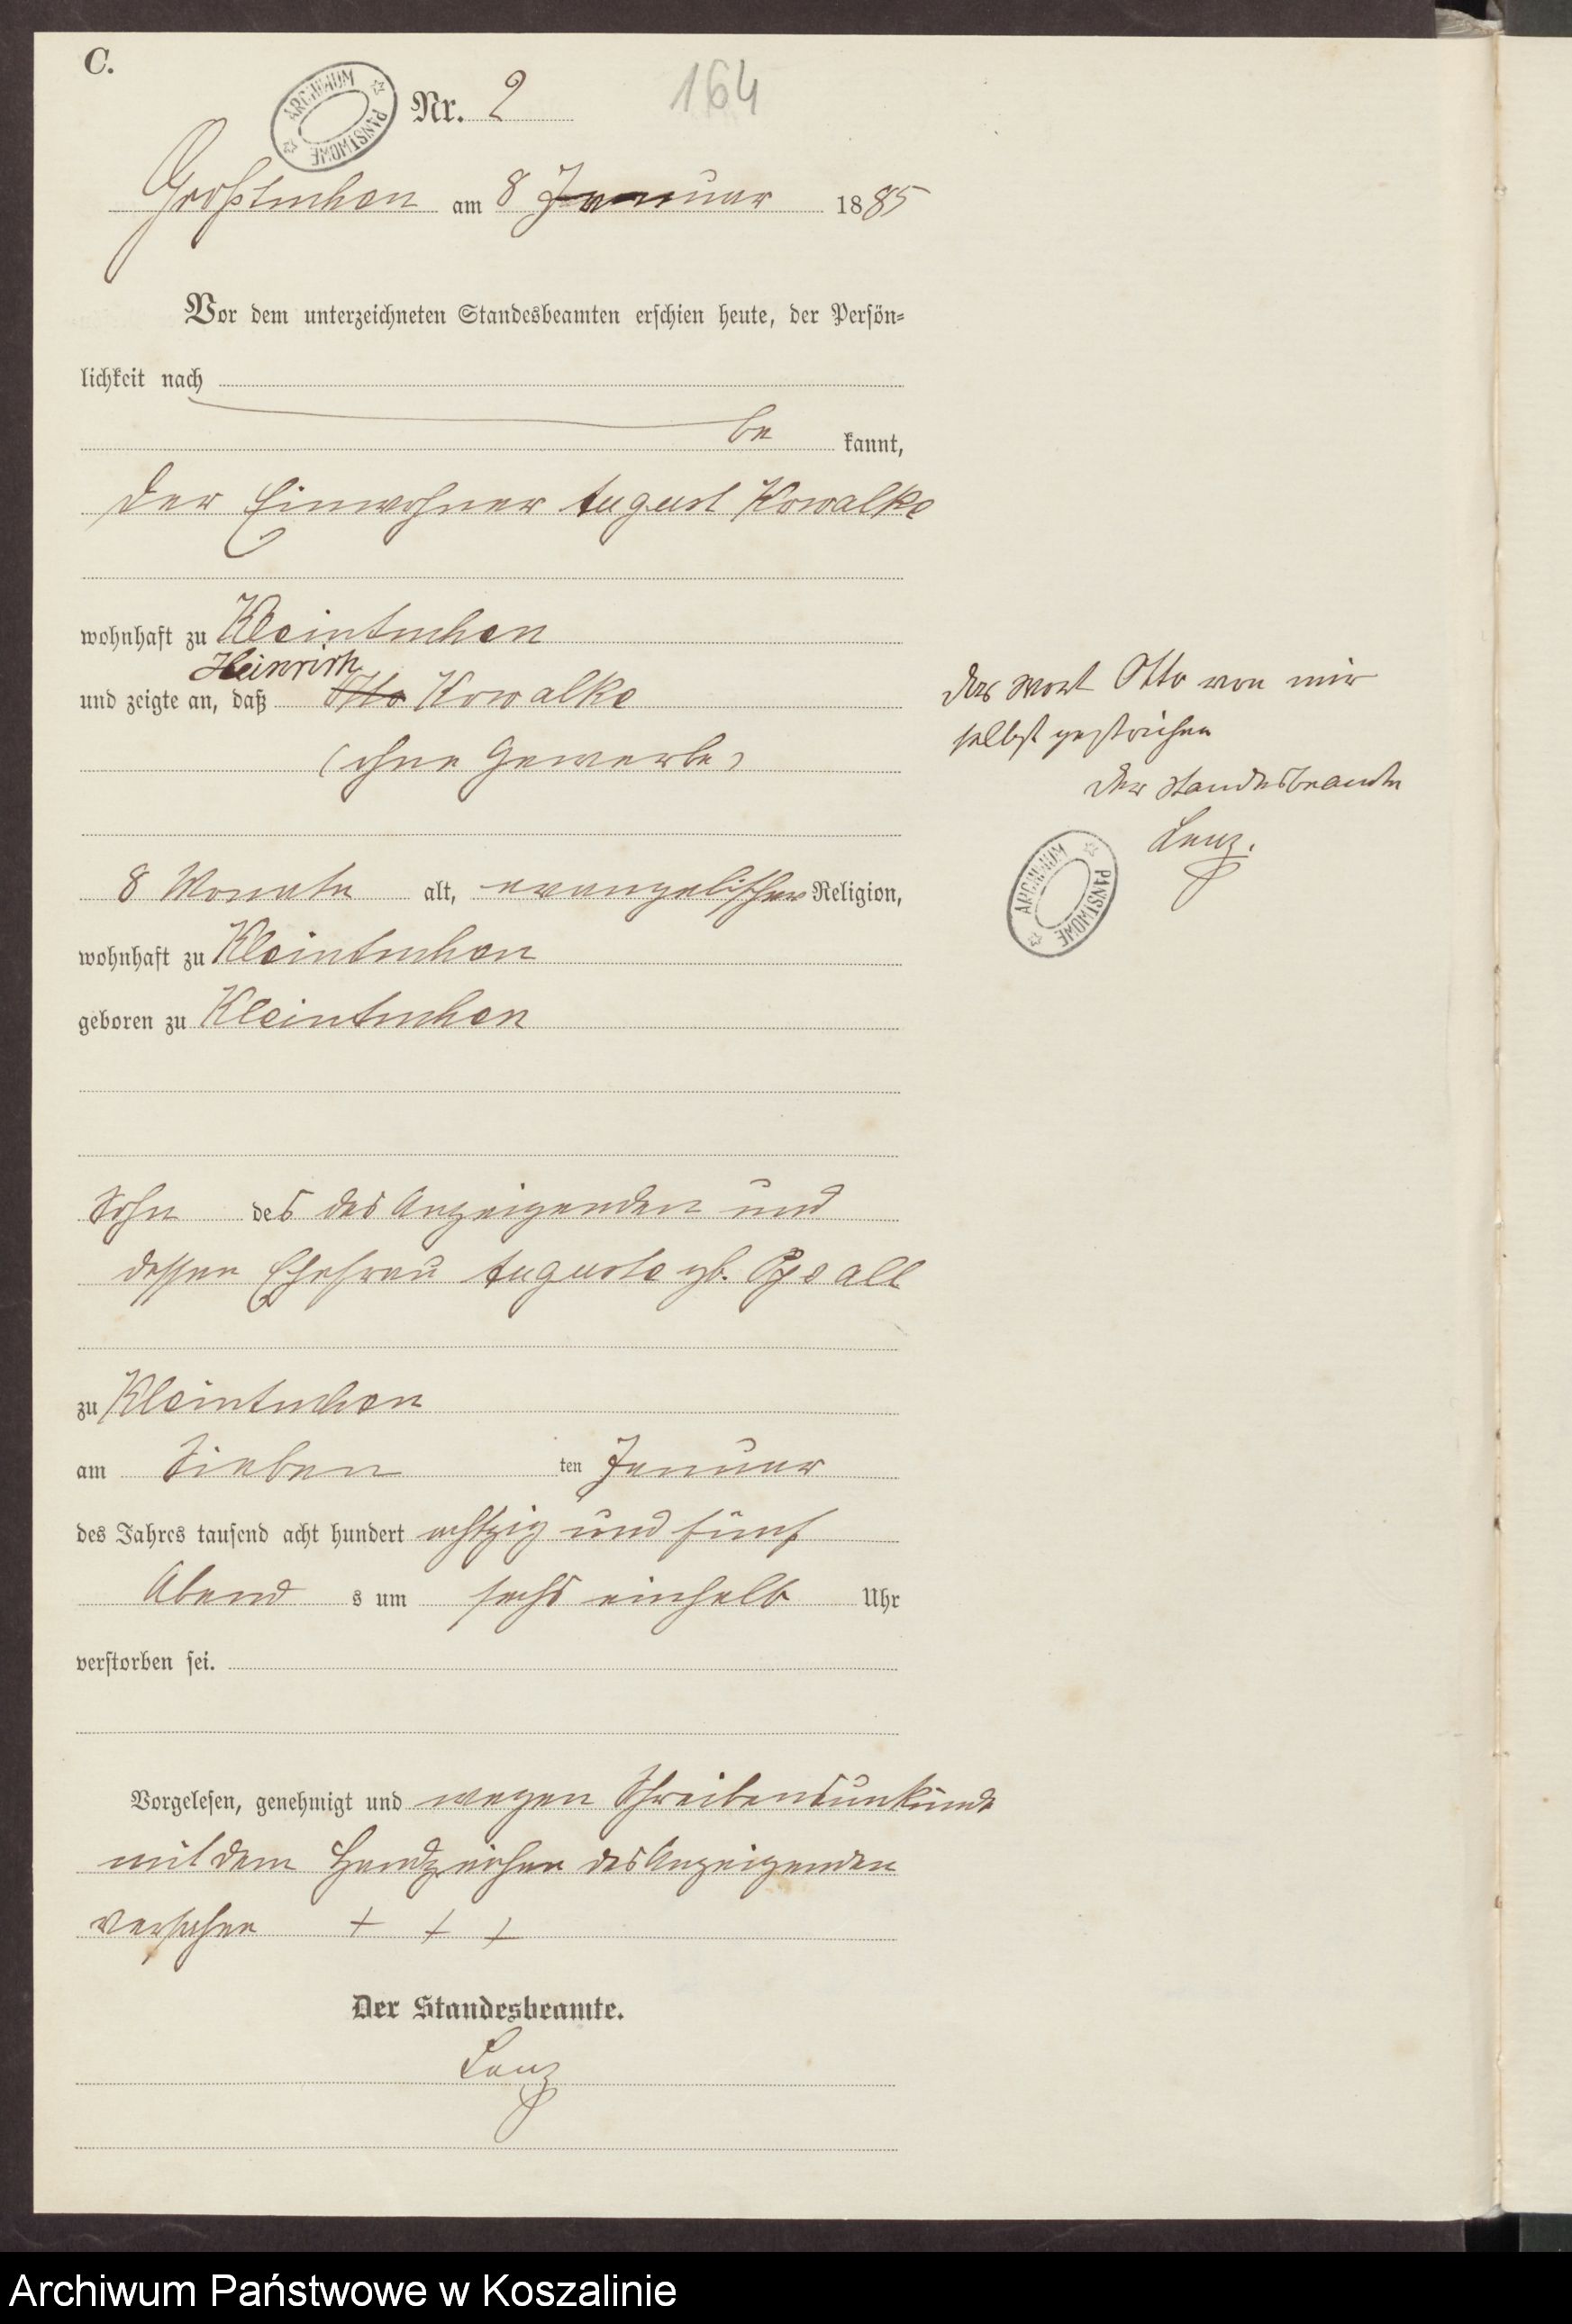 C.
ARCHIWUM PAŃSTWOWE
Nr. 2
164
Großtuchen am 8 Januar 1885
Vor dem unterzeichneten Standesbeamten erschien heute, der Persön-
lichkeit nach
be kannt,
der Einwohner August Kowalke
wohnhaft zu Kleintuchen
Heinrich
und zeigte an, daß Otto Kowalke
(ohne Gewerbe)
8 Monate alt, evangelischer Religion,
wohnhaft zu Kleintuchen
geboren zu Kleintuchen
Sohn des des Anzeigenden und
dessen Ehefrau Auguste gb.
zu Kleintuchen
am Sieben ten Januar
des Jahres tausend acht hundert achtzig und fünf
Abend s um sechs einhalb Uhr
verstorben sei.
Vorgelesen, genehmigt und wegen Schreibensunkunde
mit dem Handzeichen des Anzeigenden
versehen + + +
Der Standesbeamte.
Lenz
Das Wort Otto von mir
selbst gestrichen
Der Standesbeamte
Lenz.
ARCHIWUM PAŃSTWOWE
Archiwum Państwowe w Koszalinie